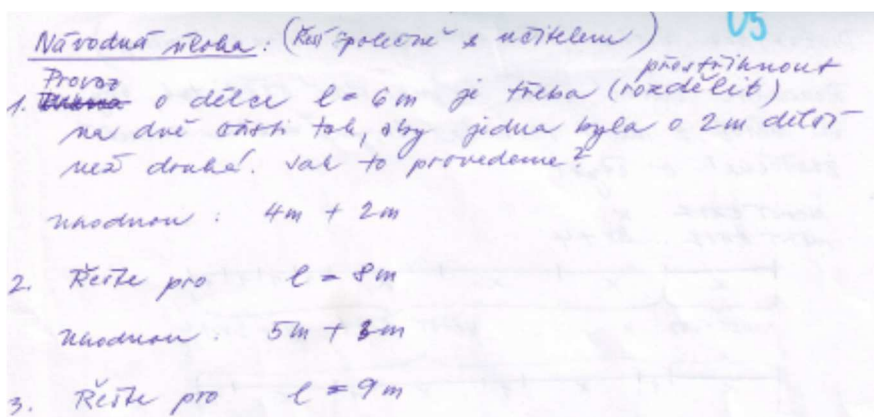 Návodná úloha: (Řeší společně s učitelem) 05
přestřihnout
Provaz
1. o délce l = 6m je třeba (rozdělit)
na dvě části tak, aby jedna byla o 2m delší
než druhá. Jak to provedeme?
uhodnou: 4m + 2m
2. Řešte pro l = 8m
uhodnou: 5m + 3m
3. Řešte pro l = 9m